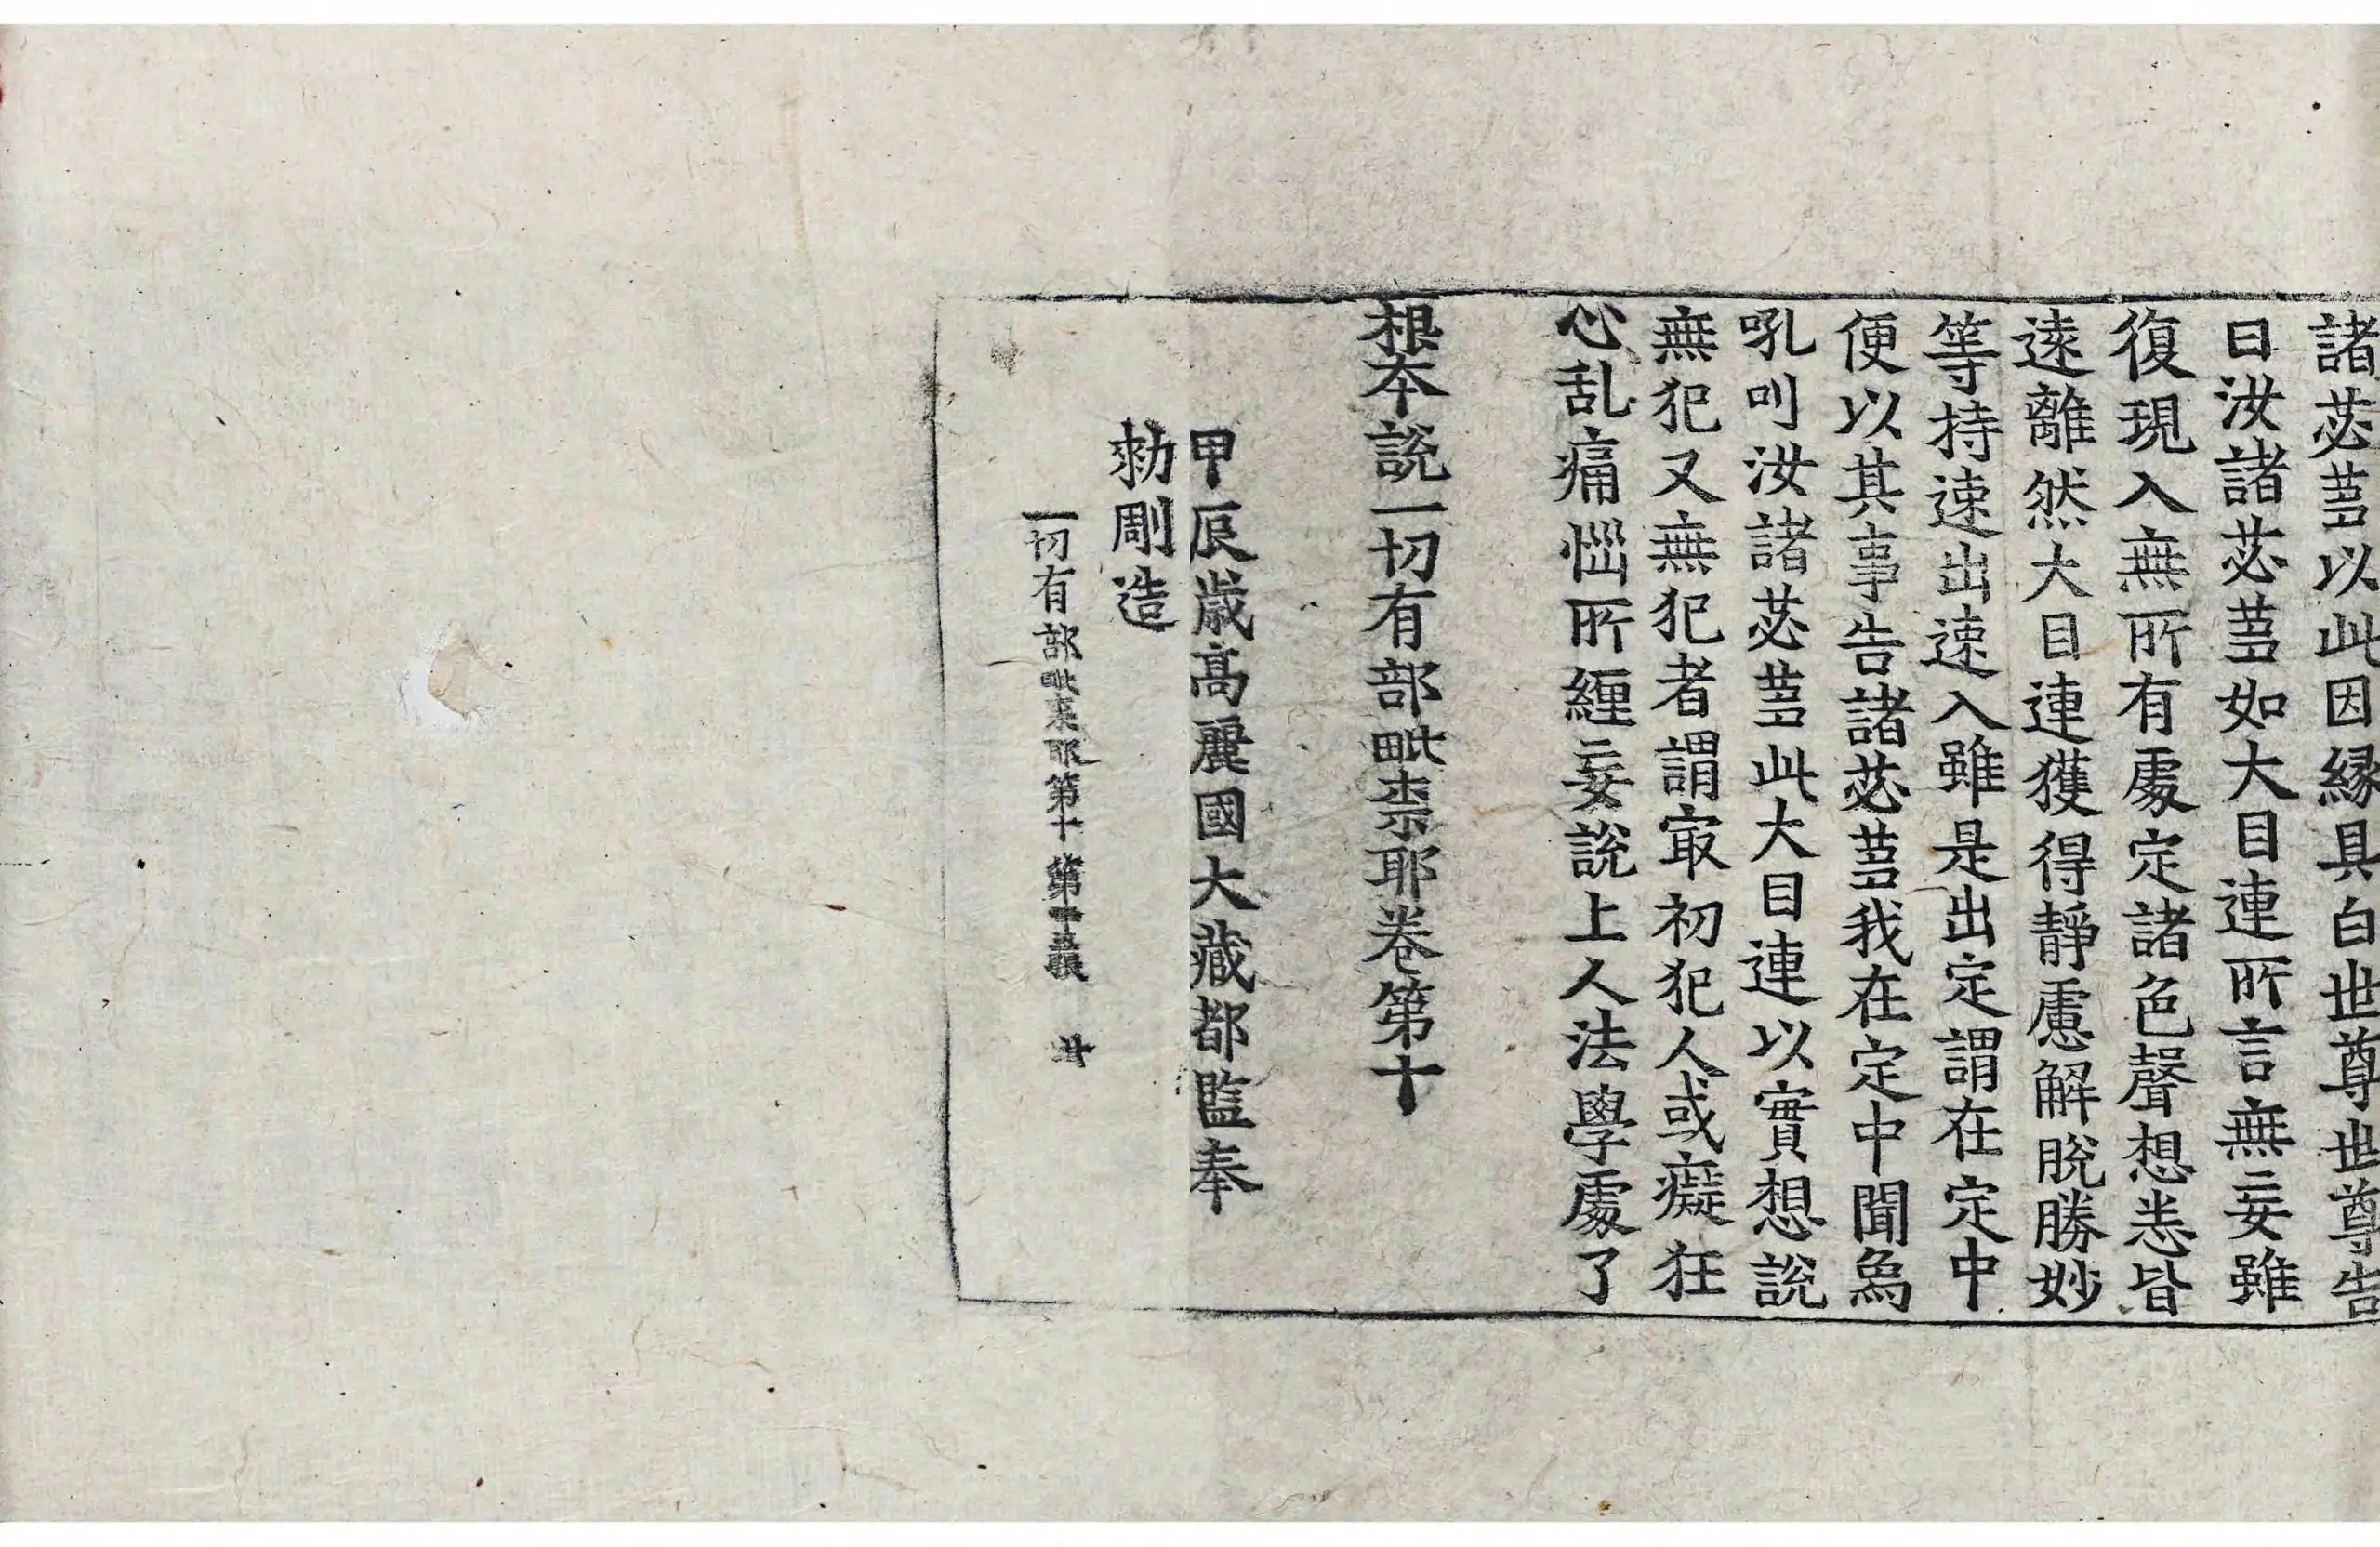 諸苾蒭以此因縁具白世尊世尊告
曰汝諸苾蒭如大目連所言無妄雖
復現入無所有處定諸色聲想悉皆
遠離然大目連獲得靜慮解脫勝妙
等持速出速入雖是出定謂在定中
便以其事告諸苾蒭我在定中聞爲
吼叫汝諸苾蒭此大目連以實想說
無犯又無犯者謂㝡初犯人或癡狂
心乱痛惱所纏妄說上人法學處了
根本說一切有部毗柰耶卷第十
甲辰歲高麗國大藏都監奉
勑彫造
一切有部毗柰耶第十 第 張